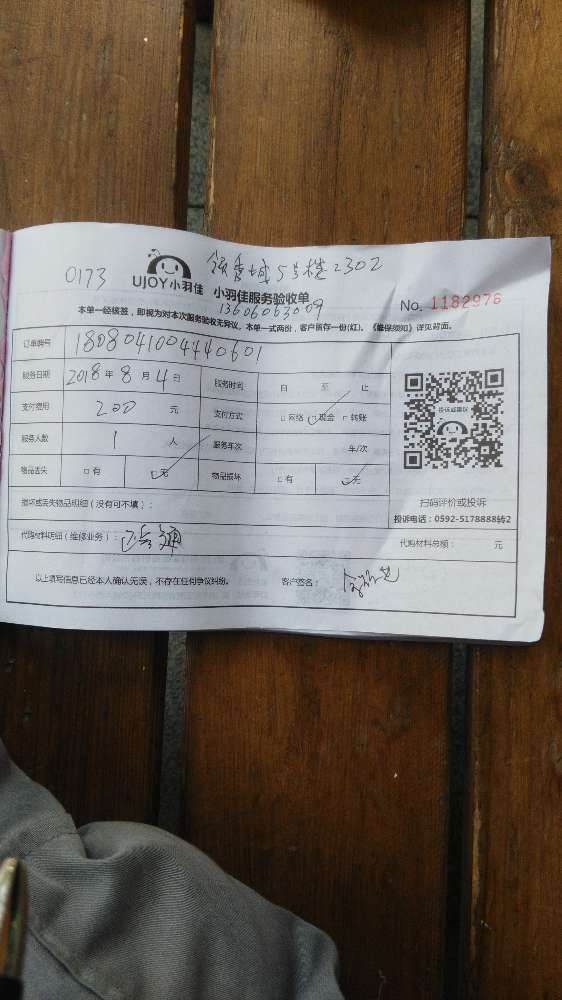 0173 领秀城5号楼2302
UJOY小羽佳 小羽佳服务验收单
13606063009 No. 1182976
本单一经核签,即视为对本次服务验收无异议。本单一式两份,客户留存一份(红)。《维保须知》详见背面。
订单编号 1808041004440601
服务日期 2018年8月4日 服务时间 自 至 止
支付费用 200 元 支付方式 □网络 □现金 □转账
服务人数 1 人 服务车次 车/次
物品丢失 □有 □无 物品损坏 □有 □无
投诉或建议
扫码评价或投诉
投诉电话:0592-5178888转2
损坏或丢失物品明细(没有可不填):
代购材料明细(维修业务): 已疏通 代购材料总额: 元
以上填写信息已经本人确认无误,不存在任何争议纠纷。 客户签名: